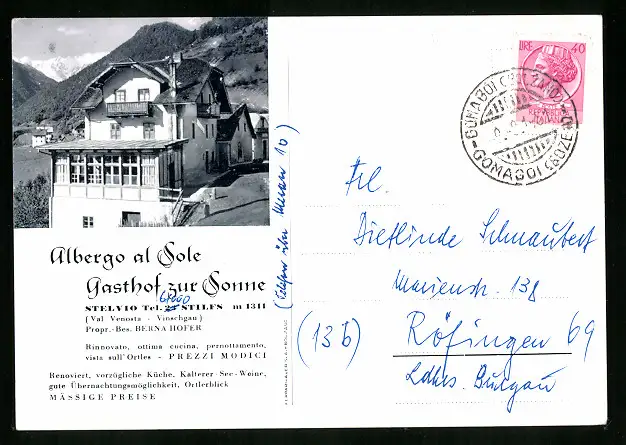 Albergo al Sole
Gasthof zur Sonne
STELVIO Tel. STILFS m 1311
(Val Venosta - Vinschgau)
Propr.-Bes. BERNA HOFER
Rinnovato, ottima cucina, pernottamento,
vista sull'Ortles - PREZZI MODICI
Renoviert, vorzügliche Küche, Kalterer-See-Weine,
gute Übernachtungsmöglichkeit, Ortlerblick
MÄSSIGE PREISE
(Telefon über Meran 10)
LIRE 40
GOMAGOI (BOLZANO)
GOMAGOI (BOZEN)
Frl.
Dietlinde Schnaubert
Marienstr. 138
(13b) Röfingen 69
Ldkrs. Burgau